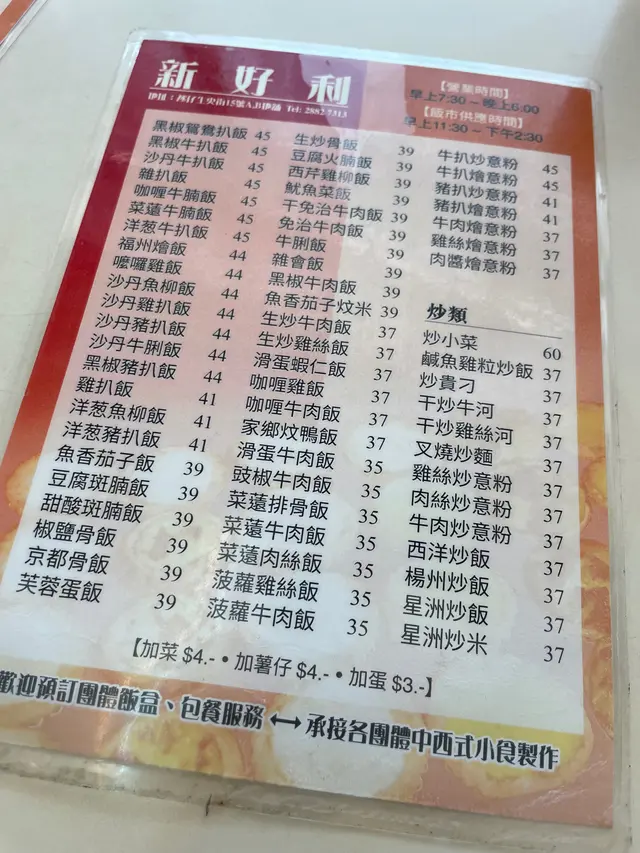 新好利
地址：氹仔生央街15號A,B地舖 Tel: 2882 7313
【營業時間】
早上7:30 ~ 晚上6:00
【飯市供應時間】
早上11:30 ~ 下午2:30
黑椒鴛鴦扒飯 45
黑椒牛扒飯 45
沙丹牛扒飯 45
雜扒飯 45
咖喱牛腩飯 45
菜薳牛腩飯 45
洋葱牛扒飯 45
福州燴飯 44
嚤囉雞飯 44
沙丹魚柳飯 44
沙丹雞扒飯 44
沙丹豬扒飯 44
沙丹牛脷飯 44
黑椒豬扒飯 44
雞扒飯 41
洋葱魚柳飯 41
洋葱豬扒飯 41
魚香茄子飯 39
豆腐斑腩飯 39
甜酸斑腩飯 39
椒鹽骨飯 39
京都骨飯 39
芙蓉蛋飯 39
生炒骨飯 39
豆腐火腩飯 39
西芹雞柳飯 39
魷魚菜飯 39
干免治牛肉飯 39
免治牛肉飯 39
牛脷飯 39
雜會飯 39
黑椒牛肉飯 39
魚香茄子炆米 39
生炒牛肉飯 37
生炒雞絲飯 37
滑蛋蝦仁飯 37
咖喱雞飯 37
咖喱牛肉飯 37
家鄉炆鴨飯 37
滑蛋牛肉飯 35
豉椒牛肉飯 35
菜薳排骨飯 35
菜薳牛肉飯 35
菜薳肉絲飯 35
菠蘿雞絲飯 35
菠蘿牛肉飯 35
牛扒炒意粉 45
牛扒燴意粉 45
豬扒炒意粉 41
豬扒燴意粉 41
牛肉燴意粉 37
雞絲燴意粉 37
肉醬燴意粉 37
炒類
炒小菜 60
鹹魚雞粒炒飯 37
炒貴刁 37
干炒牛河 37
干炒雞絲河 37
叉燒炒麵 37
雞絲炒意粉 37
肉絲炒意粉 37
牛肉炒意粉 37
西洋炒飯 37
楊州炒飯 37
星洲炒飯 37
星洲炒米 37
【加菜 $4.-・加薯仔 $4.-・加蛋 $3.-】
歡迎預訂團體飯盒、包餐服務 ↔ 承接各團體中西式小食製作